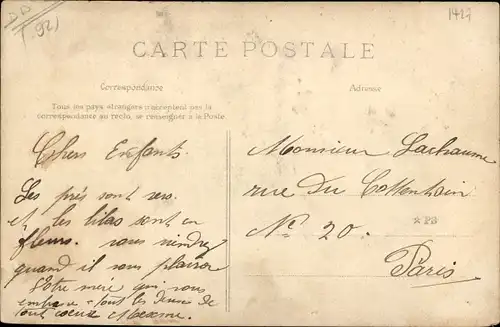 DD
(92)
1417
CARTE POSTALE
Correspondance
Tous les pays étrangers n'acceptent pas la
correspondance au recto, se renseigner à la Poste
Adresse
Chers Enfants.
Les prés sont vers.
et les lilas sont en
fleurs. vous viendrez
quand il vous plaira
Votre mère qui vous
embrasse tout les deux de
tout cœur
Monsieur Lachaume
rue Du Cottentain
N° 20.
★PB
Paris